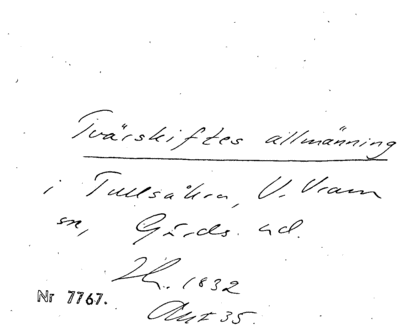 Tvärskiftes allmänning
i Tullsåkra, V. Vram
sn, Gärds hd.
1832
Nr 7767.
Akt 35.